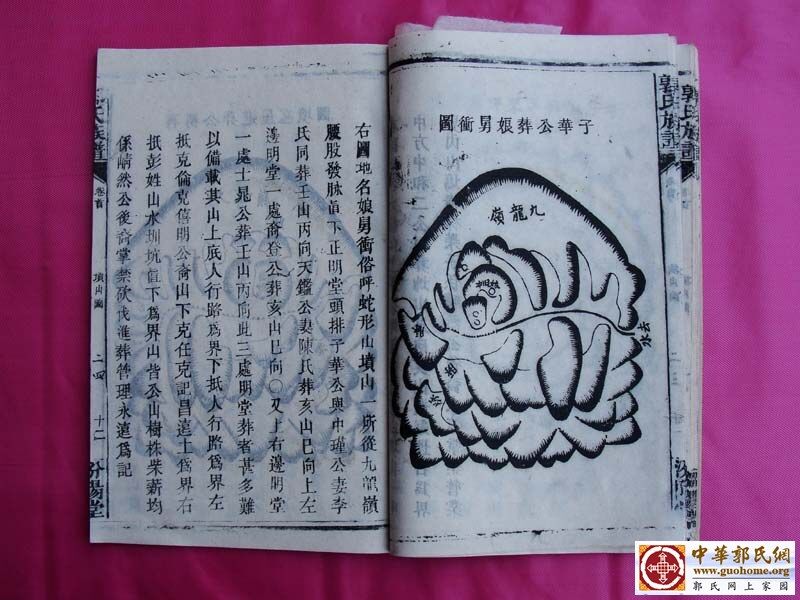 郭氏族譜
郭氏族譜
子華公葬娘舅衝圖
九龍嶺
去水
右圖地名娘舅衝俗呼蛇形山墳山一所從九龍嶺
腰股發脉直下正明堂頭排子華公與中瑾公妻李
氏同葬壬山丙向天鑑公妻陳氏葬亥山巳向上左
邊明堂一處裔登公葬亥山巳向〇又上右邊明堂
一處士晁公葬壬山丙向此三處明堂葬者甚多難
以備載其山上底人行路爲界下抵人行路爲界左
抵克倫克僖明公裔山下克任克記昌遠土爲界右
抵彭姓山水圳坑直下爲界山皆公山樹株柴薪均
係然公後裔掌禁砍伐進葬管理永遠爲記
氏族譜
卷首
墳山圖
二四
十二
汾陽堂
中華郭氏網
www.guohome.org
郭氏网上家园